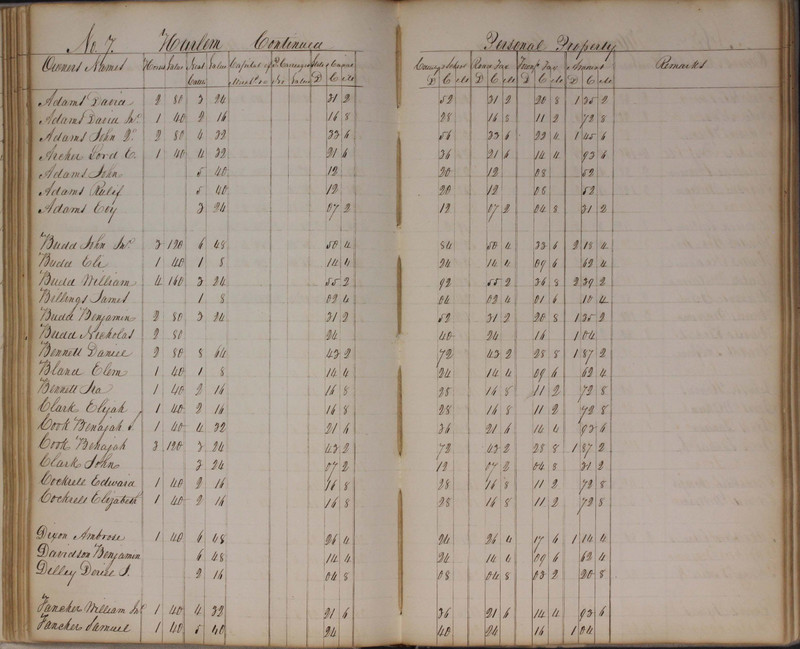 No. 7. Harlem Continued
Owners Names Horses Value Neat Cattle Value Capital of Merch &c Value State & Capital D C Mls
Adams David 2 80 3 24 31 2
Adams David Jr. 1 40 2 16 16 8
Adams John Q. 2 80 4 32 33 6
Archer Lord E. 1 40 4 32 21 6
Adams John 5 40 12
Adams Rulif 5 40 12
Adams Coy 3 24 07 2
Budd John Jr. 3 120 6 48 50 4
Budd Eli 1 40 1 8 14 4
Budd William 4 160 3 24 55 2
Billings James 1 8 02 4
Budd Benjamin 2 80 3 24 31 2
Budd Nicholas 2 80 24
Bennett Daniel 2 80 8 64 43 2
Bland Elem 1 40 1 8 14 4
Bennett Ira 1 40 2 16 16 8
Clark Elijah 1 40 2 16 16 8
Cook Benajah J. 1 40 4 32 21 6
Cook Benajah 3 120 3 24 43 2
Clark John 3 24 07 2
Cockrell Edward 1 40 2 16 16 8
Cockrell Elizabeth 1 40 2 16 16 8
Dixon Ambrose 1 40 6 48 26 4
Davidson Benjamin 6 48 14 4
Dilley 2 16 04 8
Fancher William Jr. 1 40 4 32 21 6
Fancher Samuel 1 40 5 40 24
Personal Property
County & School D C Mls Road Tax D C Mls Town'p Tax D C Mls Amount D C Mls Remarks
52 31 2 20 8 1 35 2
28 16 8 11 2 72 8
56 33 6 22 4 1 45 6
36 21 6 14 4 93 6
20 12 08 52
20 12 08 52
12 07 2 04 8 31 2
84 50 4 33 6 2 18 4
24 14 4 09 6 62 4
92 55 2 36 8 2 39 2
04 02 4 01 6 10 4
52 31 2 20 8 1 35 2
40 24 16 1 04
72 43 2 28 8 1 87 2
24 14 4 09 6 62 4
28 16 8 11 2 72 8
28 16 8 11 2 72 8
36 21 6 14 4 93 6
72 43 2 28 8 1 87 2
12 07 2 04 8 31 2
28 16 8 11 2 72 8
28 16 8 11 2 72 8
24 26 4 17 6 1 14 4
24 14 4 09 6 62 4
08 04 8 03 2 20 8
36 21 6 14 4 93 6
40 24 16 1 04